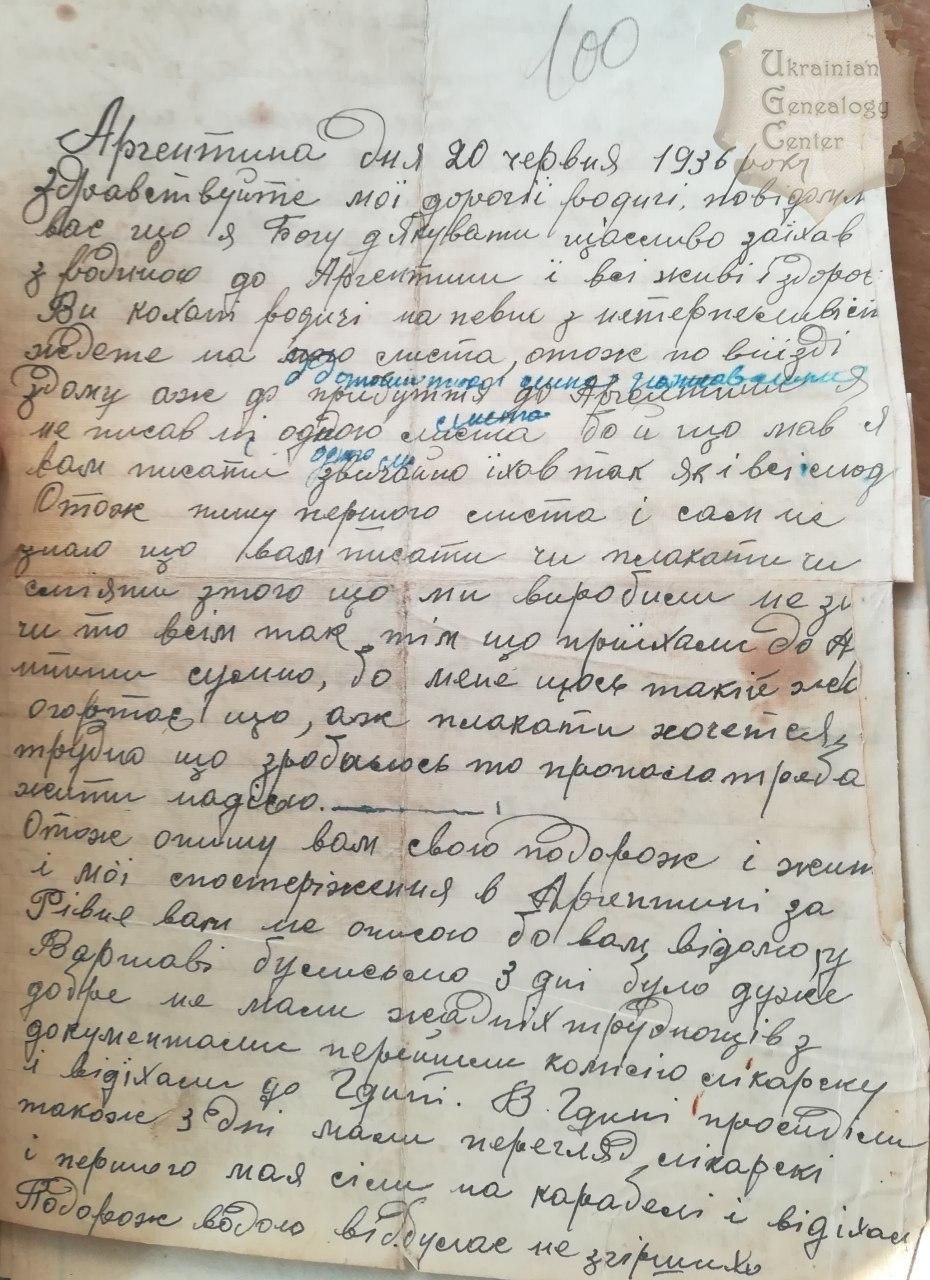 100
Ukrainian
Genealogy
Center
Аргентина дня 20 червня 1936 року
Здравствуйте мої дорогії родичі, повідомл
вас що я Богу дякувати щасливо заїхав
з родиною до Аргентини і всі живі і здоров
Ви кохані родичі на певно з нетерпеливіст
ждете на мого листа, отож по виїзді
здому аж до прибуття до Аргентини я
не писав ні одного листа бо й що мав я
вам писати звичайно їхав так як і всі люд
Отож пишу першого листа і сам не
знаю що вам писати чи плакати чи
сміяти зтого що ми виробили не зн
чи то всім так тім що приїхали до А
нтини сумно, бо мене щось такій жа
огортає що, аж плакати хочется,
трудно що зробилось то пропало треба
жити надією.
Отож опишу вам свою подорож і жит
і мої спостеріження в Аргентині за
Рівне вам не описою бо вам відомо, у
Варшаві булисьмо 3 дні було дуже
добре не мали жадніх трудпощів з
документами перейшли комісію лікарску
і відїхали до Гдині. В Гдині просиділи
також 3 дні мали перегляд лікарскі
і першого мая сіли на карабелі і відїхали
Подорож водою відбулас не згірших